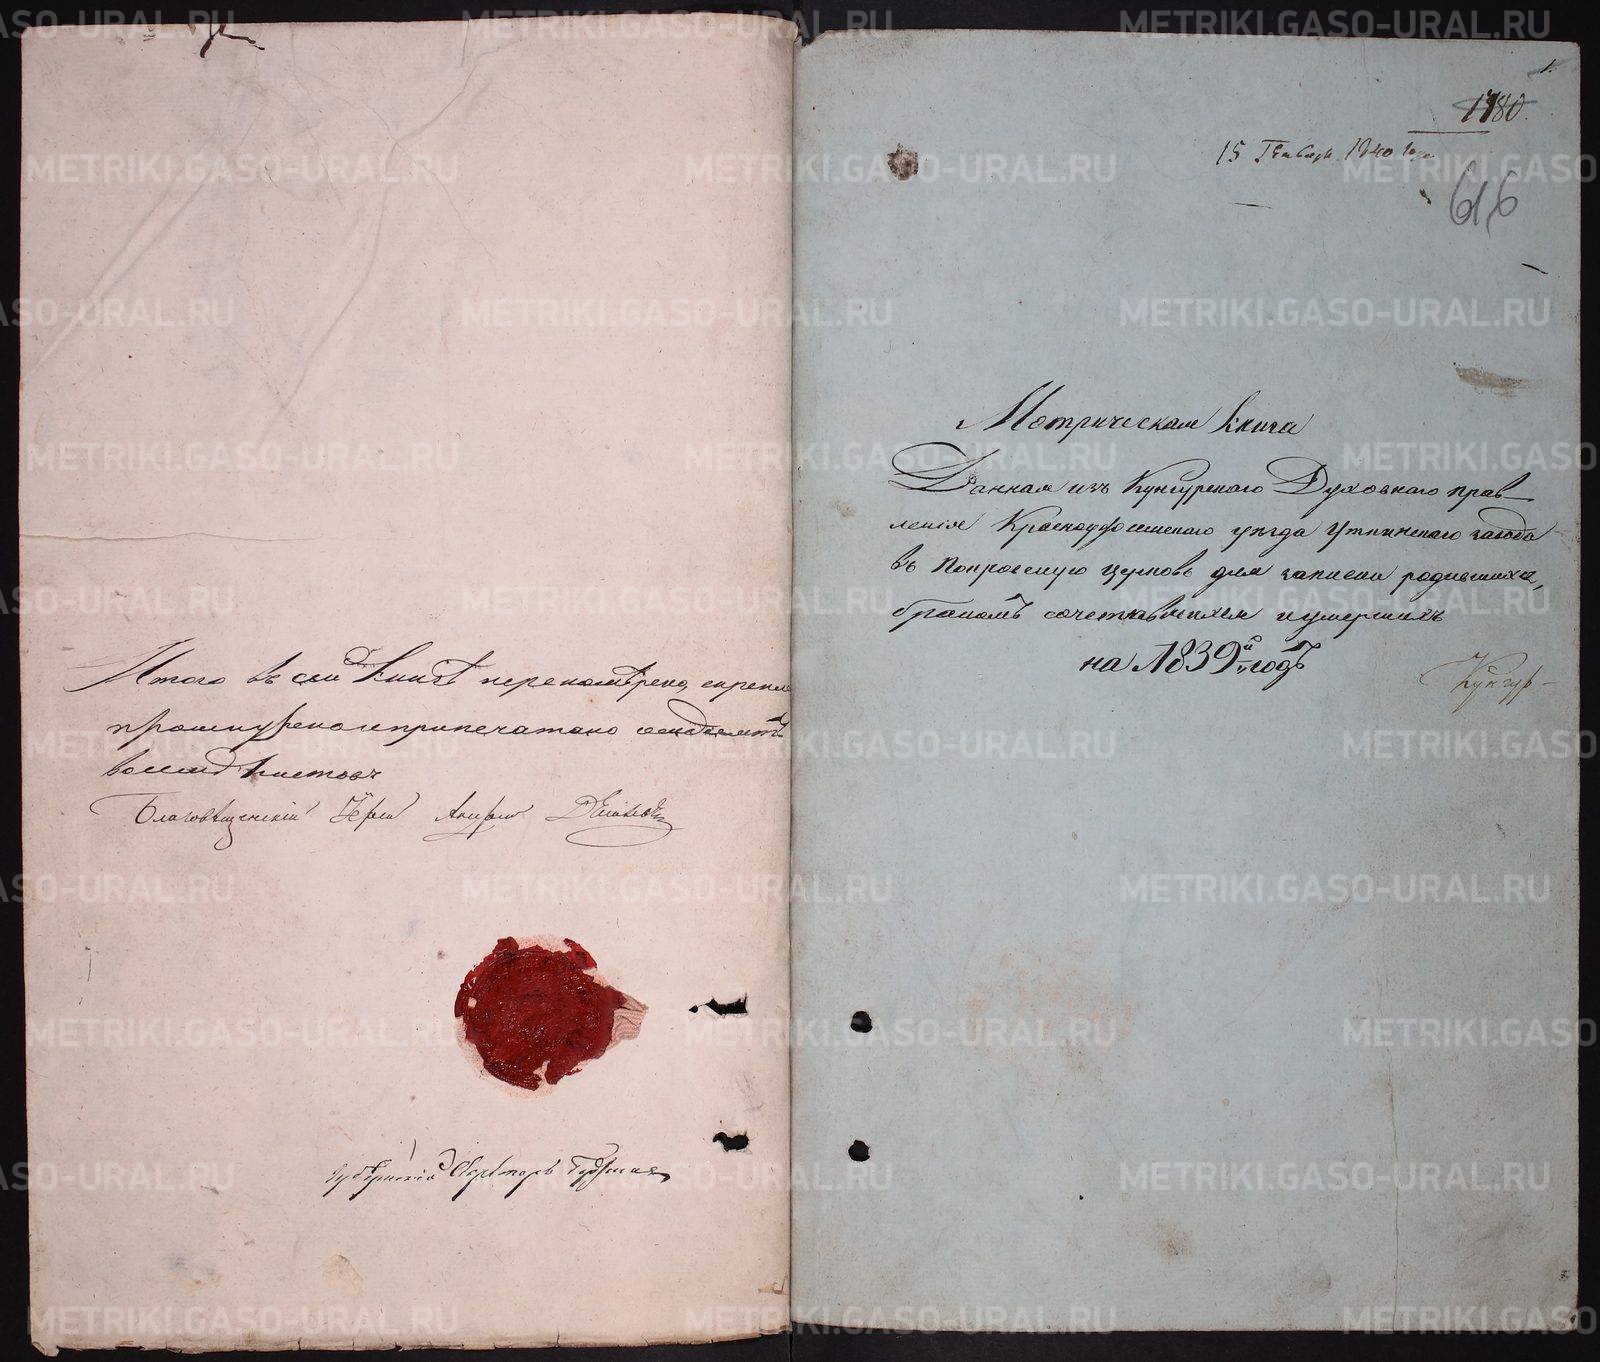 Итого въ сей книгѣ переномѣрено, скрепле
прошнурено и припечатано семдесятъ
восемь листовъ
Благовѣщенскій Іерей Андрей
Губернскій Секретарь
1.
1180.
15 Генваря 1840 года
616
Метрическая книга
Данная изъ Кунгурскаго Духовнаго прав
ленія Красноуфимскаго уѣзда Уткинскаго завода
въ Покровскую церковь для записки родившихся,
бракомъ сочетавшихся и умершихъ
на 1839й годъ
Кунгур-
METRIKI.GASO-URAL.RU